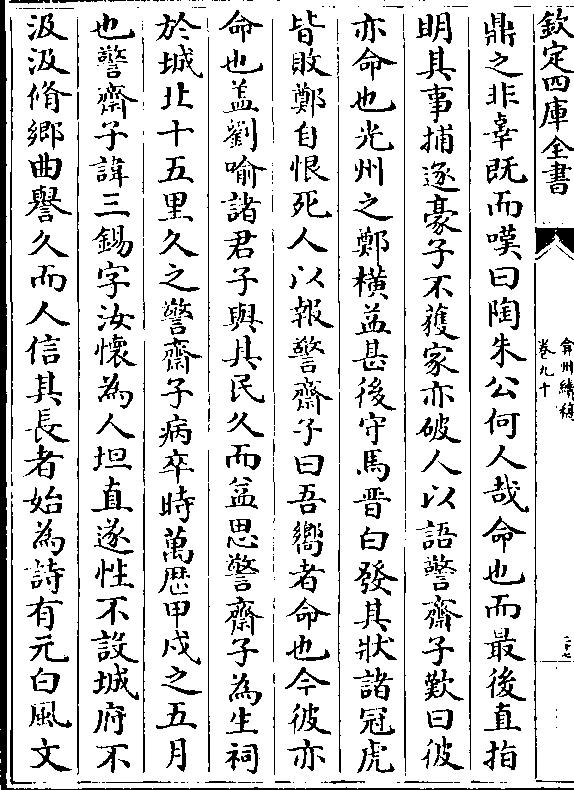 欽定四庫全書
弇州續稿
卷九十
鼎之非辜既而嘆曰陶朱公何人哉命也而最後直指
明其事捕逐豪子不獲家亦破人以語警齋子歎曰彼
亦命也光州之鄭橫益甚後守馬晋白發其狀諸冠虎
皆敗鄭自恨死人以報警齋子曰吾嚮者命也今彼亦
命也盖劉喻諸君子與其民久而益思警齋子為生祠
於城北十五里久之警齋子病卒時萬歴甲戌之五月
也警齋子諱三錫字汝懷為人坦直遂性不設城府不
汲汲脩鄉曲譽久而人信其長者始為詩有元白風文